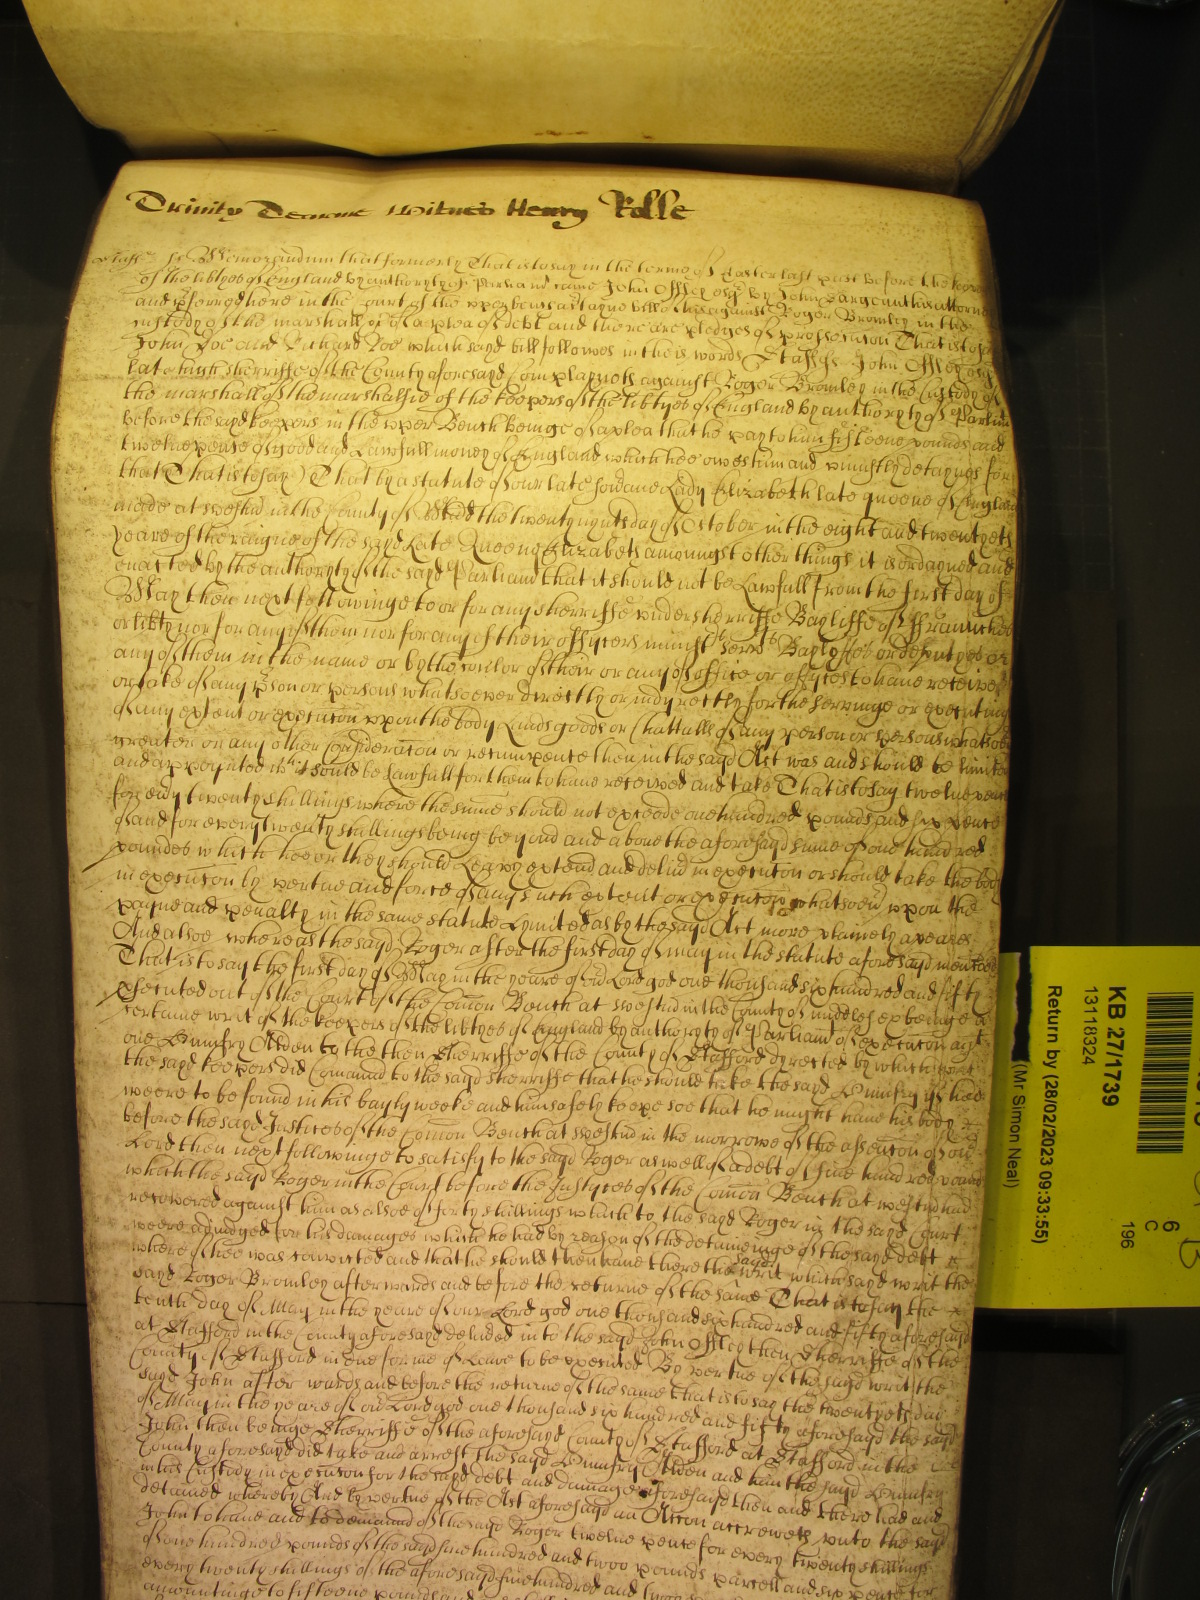 Trinity Terme Witnes Henry Rolle
Staff: ss Memorandum that formerly That is to say in the terme of Easter last past before the keepers
of the libtyes of England by authoryty of Parliamt came John Offley esqr by John Sargeant his attorney
and pferred here in the Court of the upper bench a certayne bill of his against Roger Bromley in the
custody of the marshall &c of a plea of debt and there are pledges of prosecution That is to say
John Doe and Richard Roe which sayd bill followes in theis words Staff ss John Offley esqr
late high sherriffe of the County aforesayd Complayneth against Roger Bromley in the Custody of
the marshall of the marshalsie of the keepers of the libtyes of England by authoryty of Parliamt
before the sayd keepers in the upper Bench beinge of a plea that he pay to him fifteene pounds and
twelve pense of good and Lawfull money of England which hee owes him and uniustly detaynes for
that (That is to say) That by a statute of our late Lady Elizabeth late queene of England
made at westmr in the County of Midd the twenty nynth day of October in the eight and twentyeth
yeare of the raigne of the sayd late Queene Elizabeth amoungst other things it is ordayned and
enacted by the authoryty of the sayd Parliamt that it should not be Lawfull from the first day of
May then next followinge to or for any sherriffe undersherriffe Bayliffe of ffranchies
or libty nor for any of them nor for any of their offycers minist servts Baylyffes or deputyes or
any of them in the name or by the coulor of their or any of office or offyces to have receive
or take of any pson or persons whatsoever directly or indyrectly for the servinge or executing
of any extent or execucon upon the body Lands goods or Chattells of any person or persons whatsoevr
greater or any other Consideracon or recumpence then in the sayd Act was and should be limited
and appoynted wch it should be lawfull for them to have received and take That is to say twelve pence
for evry twenty shillings where the summe should not exceede one hundred pounds and six pence
of and for every twenty shillings being beyond and above the aforesayd summe of one hundred
poundes which hee or they should Leavy extend and delivd in execucon or should take the body
in execucon by vertue and force of any such extent or execucon whatsoevr upon the
payne and penalty in the same statute Lymited as by the sayd Act more plainely apeares
And alsoe whereas the sayd Roger after the first day of may in the statute aforesayd mentoned
That is to say the first day of May in the yeare of our Lord god one thousand six hundred and fifty
psecuted out of the Court of the Comon Bench at westmr in the County of middlesex beinge a
certaine writ of the keepers of the libtyes of England by authoryty of Parliamt of execucon agt
one Humfry Alden to the then Sherriffe of the County of Stafford dyrected by which writ
the sayd keepers did Comaund to the sayd sherriffe that he should take the sayd Humfry if hee
weere to be found in his baylyweeke and him safely keepe soe that he might have his body &c
before the sayd Justices of the Comon Bench at westmr in the morrowe of the assencon of our
Lord then next followinge to satisfy to the sayd Roger as well of a debt of five hundred pounds
which the sayd Roger in the Court before the Justyces of the Comon Bench at westmr had
recovered against him as alsoe of forty shillings which to the sayd Roger in the sayd Court
weere adiudged for his damages which he had by reason of the detaineinge of the sayd debt &c
where of hee was convicted and that he should then have there the sayd writ which sayd writ the
sayd Roger Bromley afterwards and before the returne of the same That is to say the
tenth day of May in the yeare of our Lord god one thousand six hundred and fifty aforesayd
at Stafford in the County aforesayd delived into the sayd John Offley then Sherriffe of the
County of Stafford in due forme of Lawe to be executed By vertue of the sayd writ the
sayd John after wards and before the returne of the same that is to say the twentyeth day
of May in the yeare of our Lord god one thousand six hundred and fifty aforesayd the sayd
John then beinge Sherriffe of the aforesayd County of Stafford at Stafford in the
County aforesayd did take and arrest the sayd Humfry Alden and him the sayd Humfry
in his Custody in execucon for the sayd debt and damages aforesayd then and there had and
detained whereby And by vertue of the Act aforesayd an Accon accreweth unto the sayd
John to have and to demaund of the sayd Roger twelve pence for every twenty shillings
of one hundred pounds of the sayd five hundred and twoo pounds parcell and six pence for
every twenty shillings of the aforesayd five hundred and twoo
amountinge to fifteene pounds
KB 27/1739
13118324
Return by (28/02/2023 09:33:55)
(Mr Simon Neal)
6
C
196